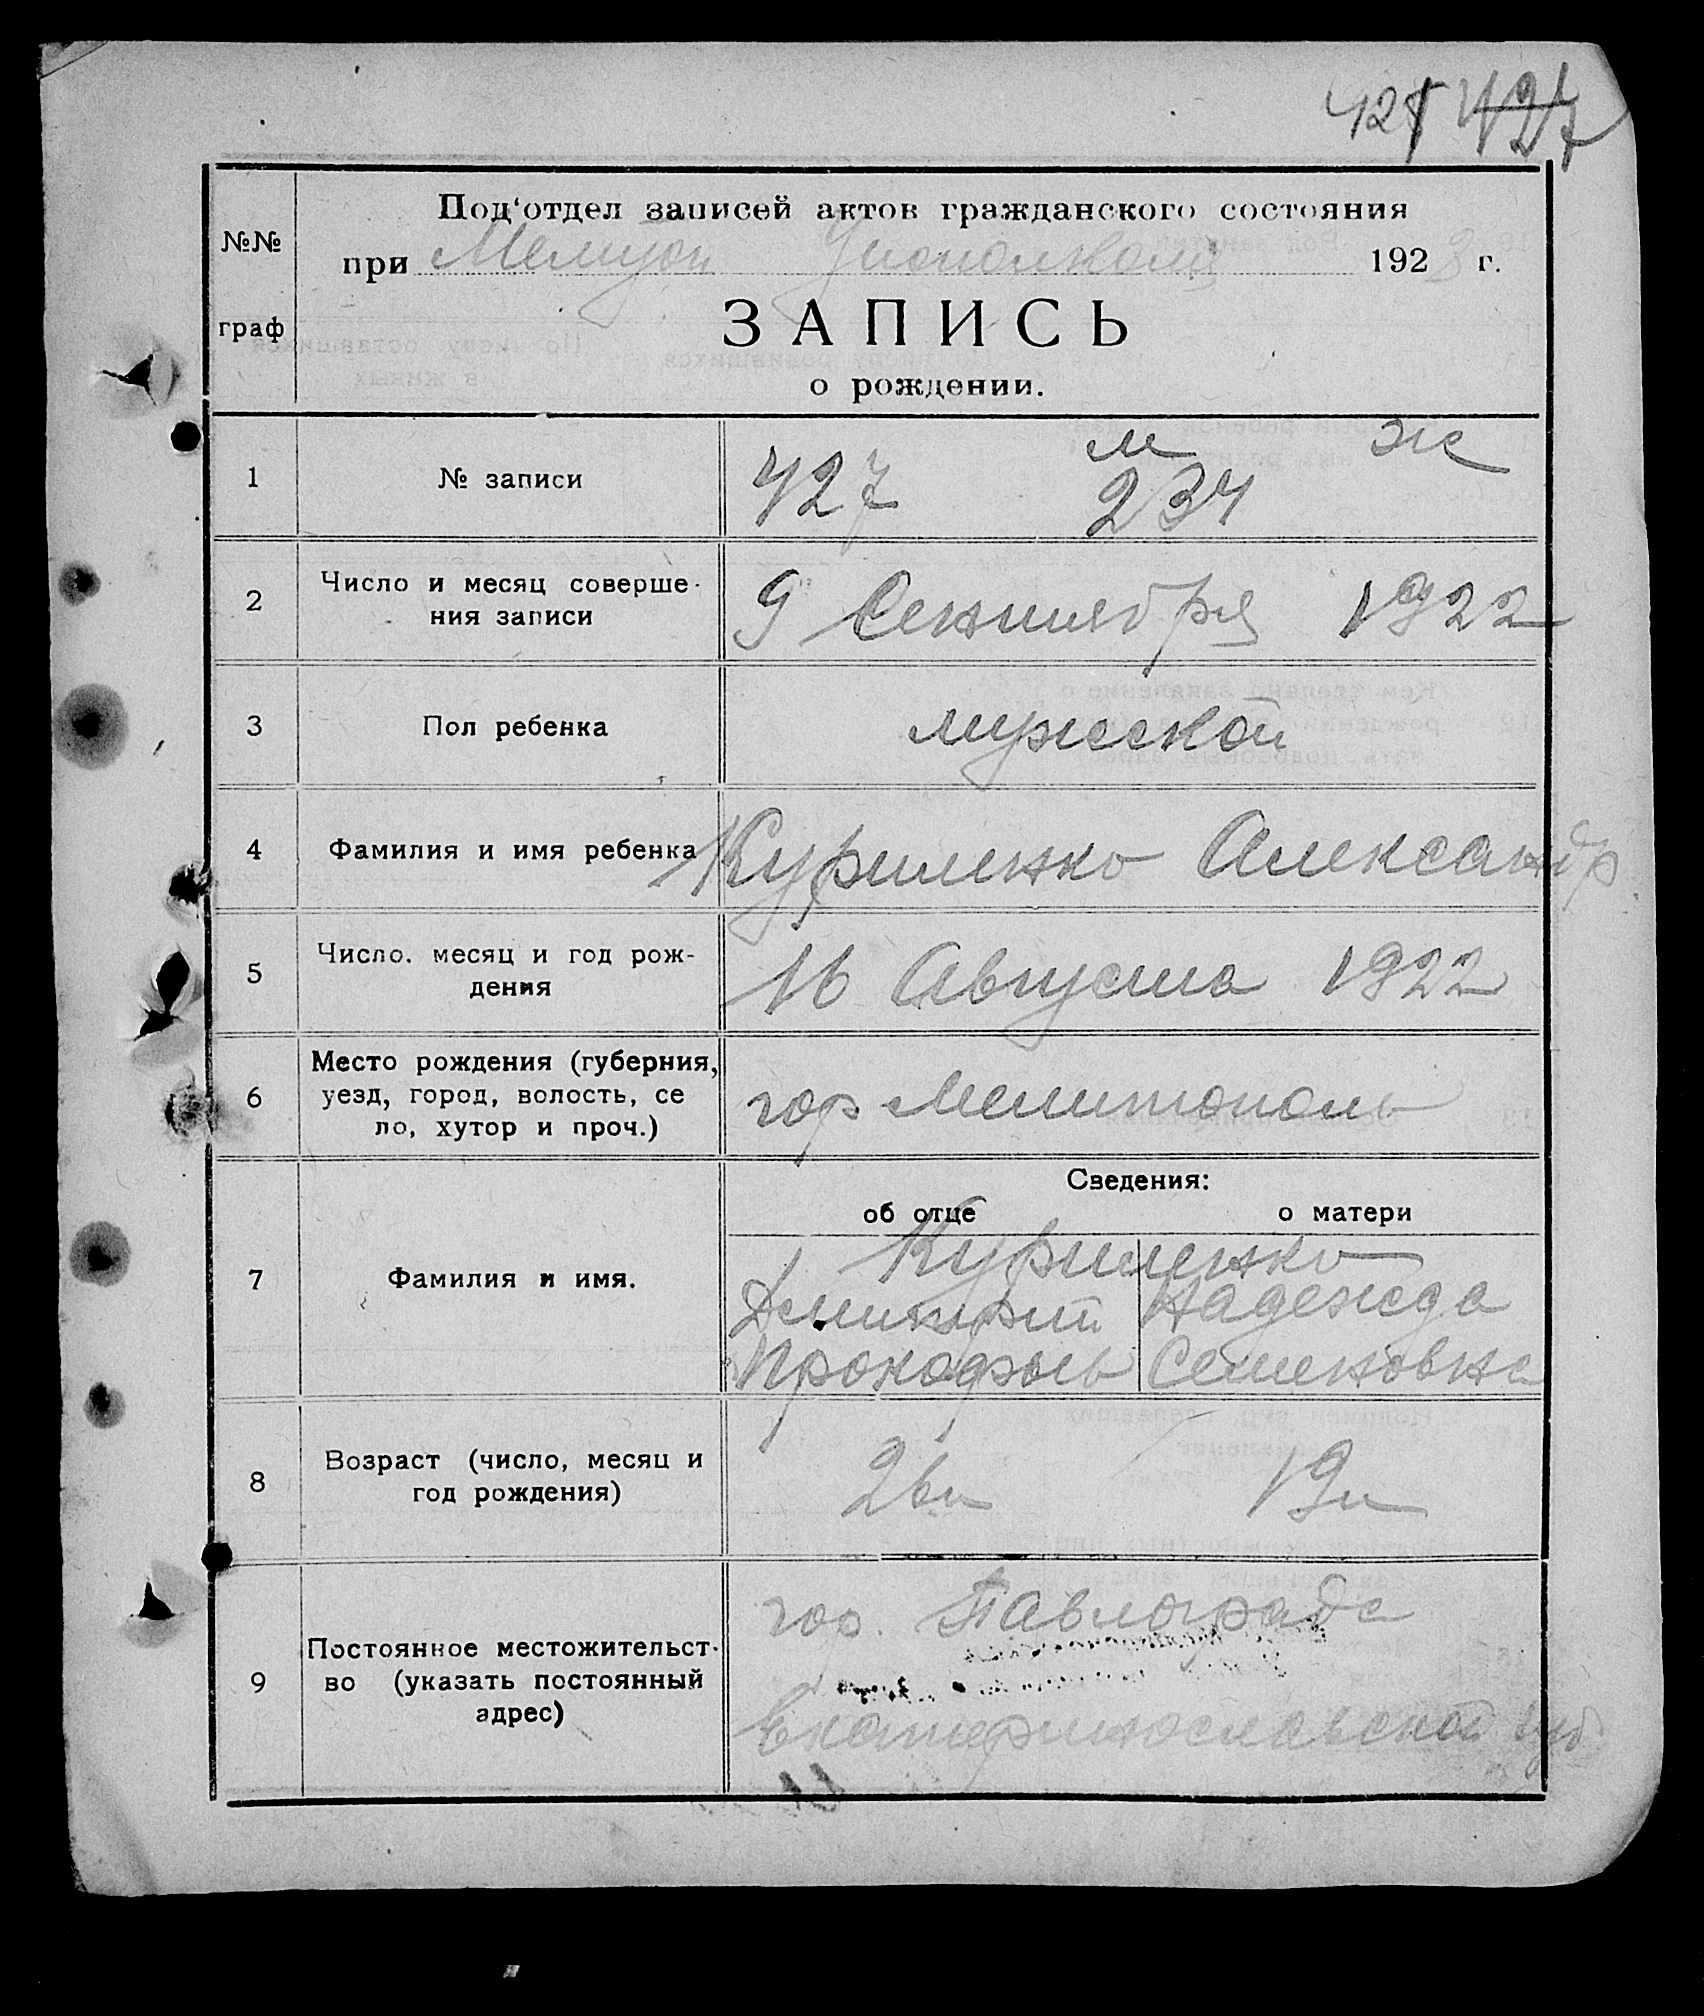 427
№№
граф
Под‘отдел записей актов гражданского состояния
при Мелитоп Уисполкоме 192 г.
ЗАПИСЬ
о рождении.
м ж
1 № записи 427 234
2 Число и месяц соверше-
ния записи 9 Сентября 1922
3 Пол ребенка мужской
4 Фамилия и имя ребенка Куриленко Александр
5 Число. месяц и год рож-
дения 16 Августа 1922
6 Место рождения (губерния,
уезд, город, волость, се
ло, хутор и проч.) гор Мелитополь
Сведения:
об отце о матери
7 Фамилия и имя. Куриленко
Дмитрий Надежда
Прокофьев Семеновна
8 Возраст (число, месяц и
год рождения) 26л 19л
9 Постоянное местожительст-
во (указать постоянный
адрес)
гор. Павлограда
Екатеринославской губ.